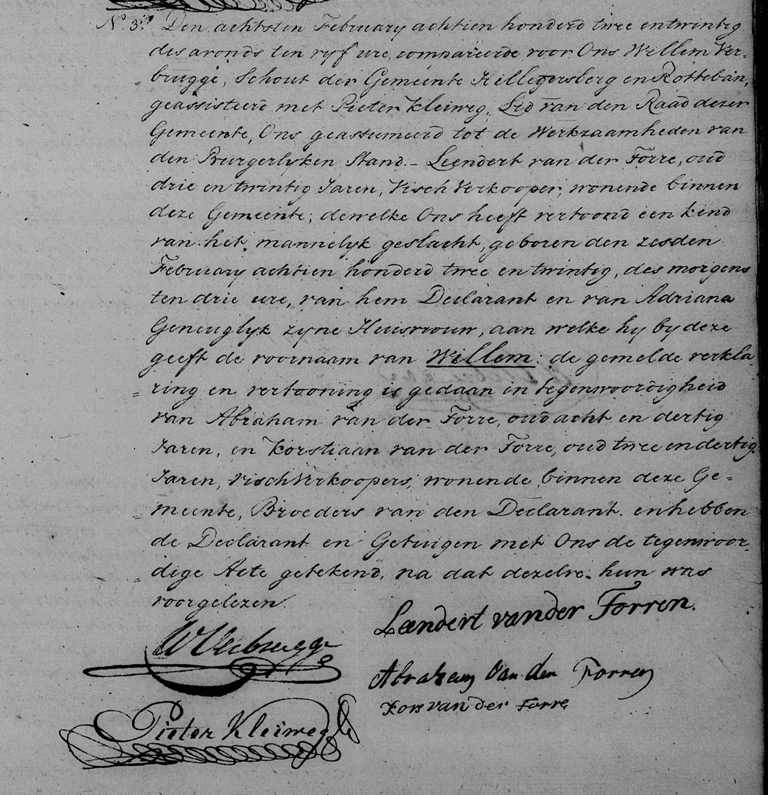 N.º 3. Den achtsten February achtien honderd twee en twintig
des avonds ten vyf ure, compareerde voor Ons Willem Ver-
brugge, Schout der Gemeente Hillegersberg en Rotteban,
geassisteerd met Pieter Kleiweg, Lid van den Raad dezer
Gemeente, Ons geassumeerd tot de Werkzaamheden van
den Burgerlyken Stand. – Leendert van der Torre, oud
drie en twintig Jaren, Visch Verkooper, wonende binnen
deze Gemeente; dewelke Ons heeft vertoond een kend
van het mannelyk geslacht, geboren den zesden
February achtien honderd twee en twintig, des morgens
ten drie ure, van hem Declarant en van Adriana
Geneuglyk zyne Huisvrouw, aan welke hy by deze
geeft de voornaam van Willem: de gemelde verkla-
ring en vertooning is gedaan in tegenwoordigheid
van Abraham van der Torre, oud acht en dertig
Jaren, en Korstiaan van der Torre, oud twee en dertig
Jaren, VischVerkoopers, wonende binnen deze Ge-
meente, Broeders van den Declarant. en hebben
de Declarant en Getuigen met Ons de tegenwoor-
dige Acte getekend, na dat dezelve hun was
voorgelezen.
Leendert van der Torren.
WVerbrugge
Abraham van der Torren
Kors van der Torre
Pieter Kleiweg